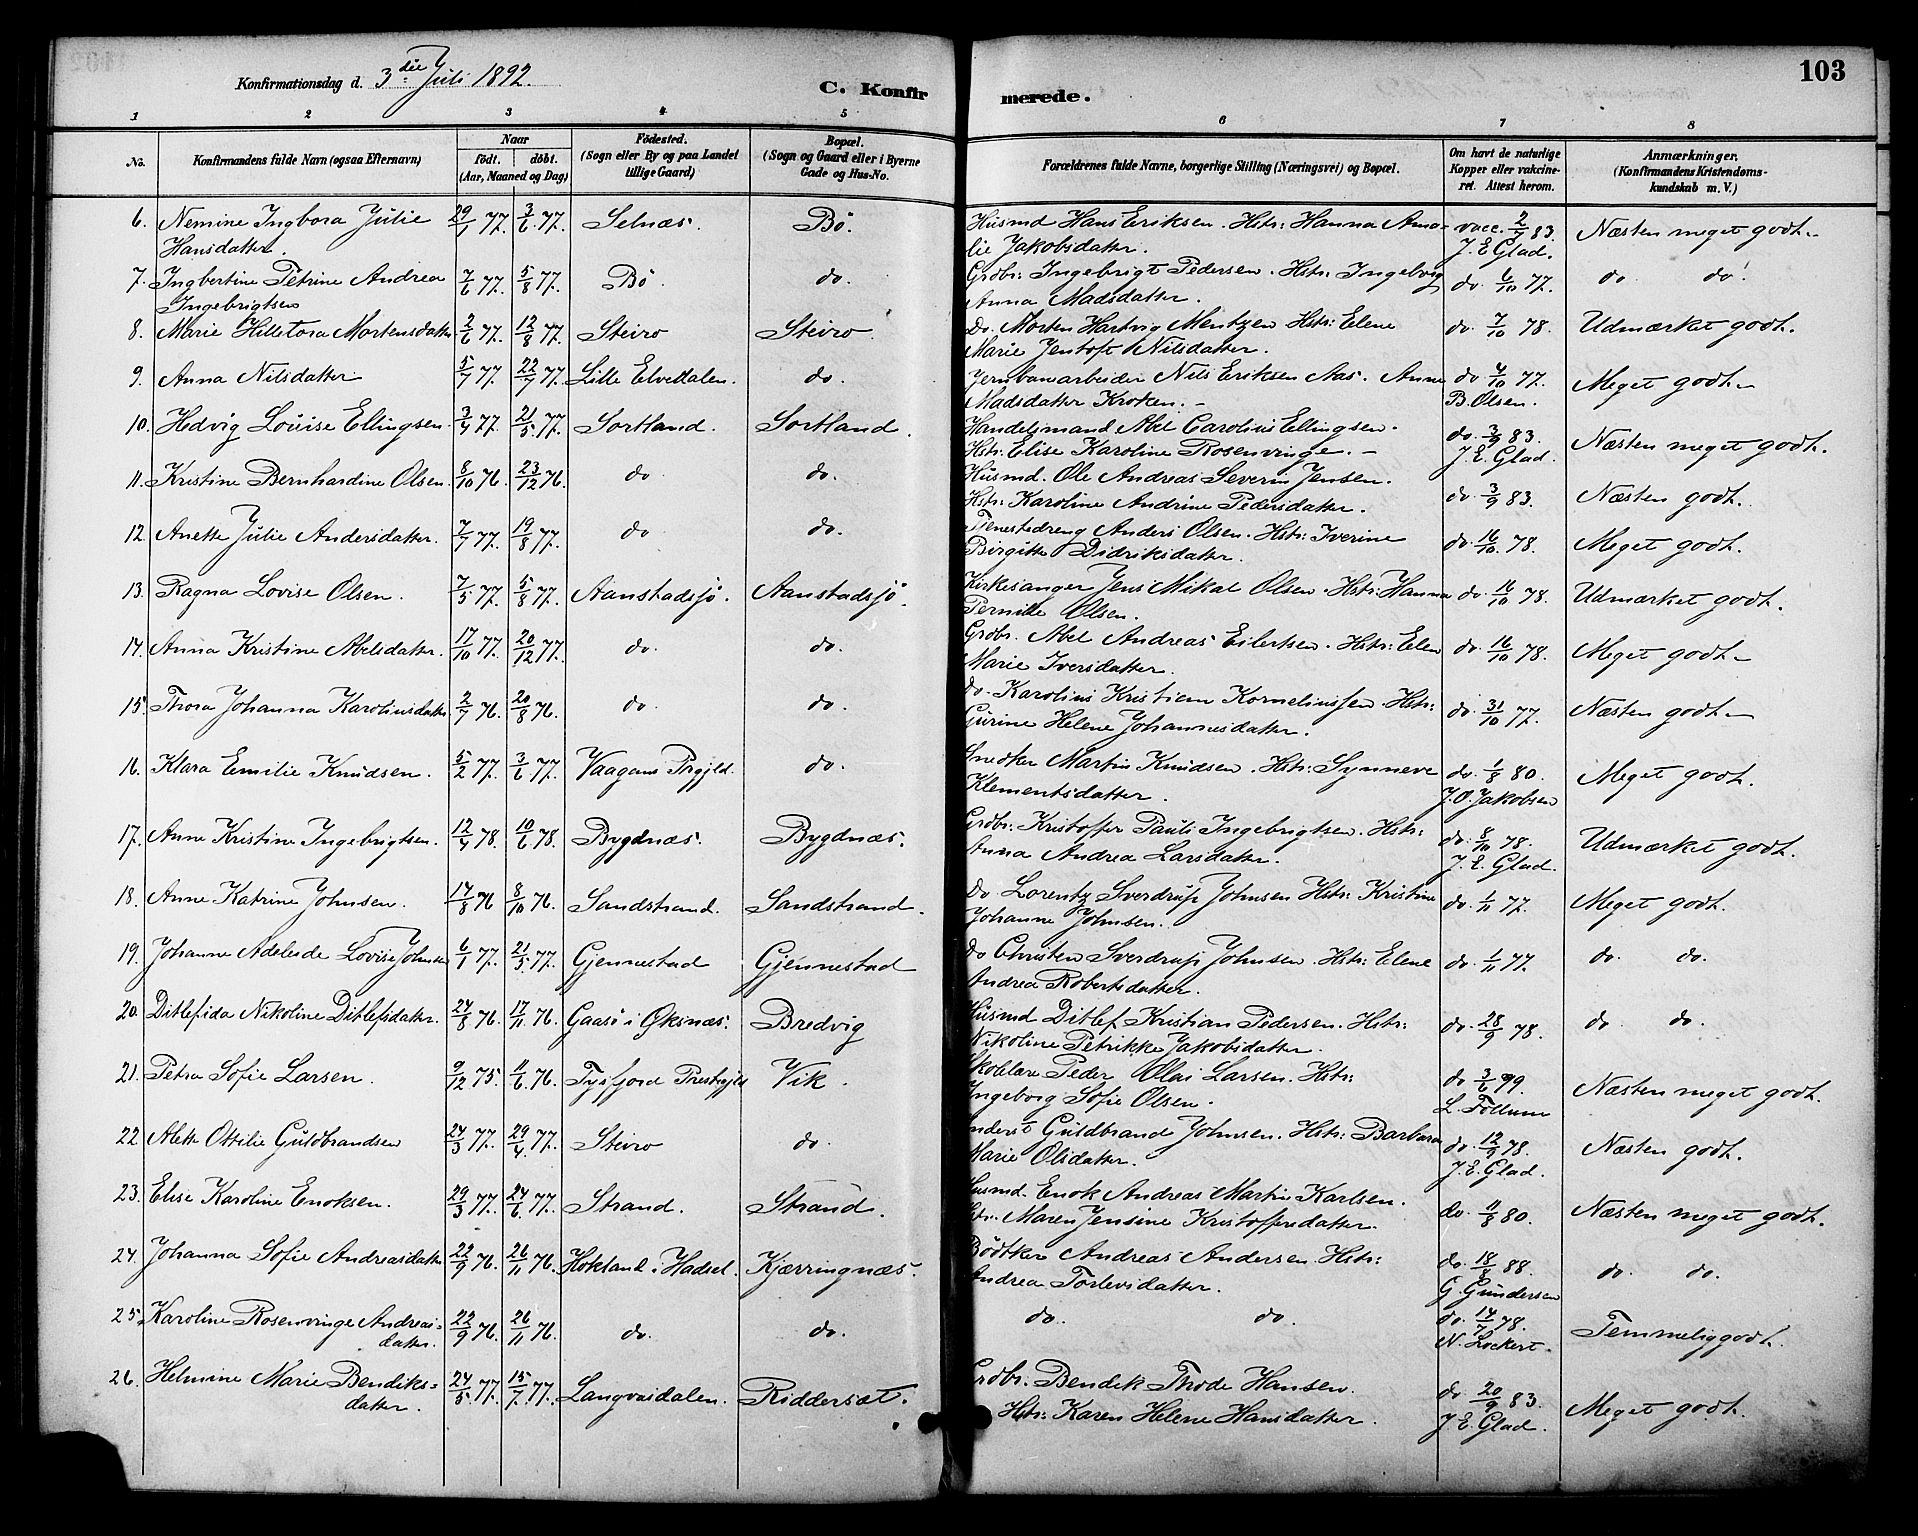 103
Konfirmationsdag d. 3die Juli 1892.
C. Konfirmerede.
1 2 3 4 5 6 7 8
No. Konfirmandens fulde Navn (ogsaa Efternavn) Naar födt. döbt. (Aar, Maaned og Dag) Födested. (Sogn eller By og paa Landet tillige Gaard) Bopæl. (Sogn og Gaard eller i Byerne Gade og Hus-No. Forældrenes fulde Navne, borgerlige Stilling (Næringsvei) og Bopæl. Om havt de naturlige Kopper eller vakcineret. Attest herom. Anmærkninger. (Konfirmandens Kristendomskundskab m. V.)
6. Nemine Ingbora Julie 29/1 77. 3/6 77. Selnæs. Bö. Husmd Hans Eriksen. Hstr: Hanna Ama- vacc. 2/7 83. Næsten meget godt.
Hansdatter. lie Jakobsdatter. J. E. Glad.
7. Ingbertine Petrine Andrea 7/6 77. 5/8 77. Bö. do. Grdbr: Ingebrigt Pedersen. Hstr: Ingebvig do. 6/10 77. do do.
Ingebrigtsen Anna Madsdatter.
8. Marie Hilletora Mortensdatter 2/6 77. 12/8 77. Steiro Steiro. do. Morten Hartvig Mentzen Hstr: Elene do. 7/10 78. Udmærket godt.
Marie Jentoft Nilsdatter.
9. Anna Nilsdatter 5/7 77. 22/7 77. Lille Elvedalen. do. Jernbanarbeider Nils Eriksen Aas. Anne do 4/10 77. Meget godt.
Madsdatter Kroken. B. Olsen.
10. Hedvig Louise Ellingsen. 3/4 77. 21/5 77. Sortland. Sortland. Handelsmand Abel Carolius Ellingsen. do. 3/9 83. Næsten meget godt.
Hstr: Elise Karoline Rosenvinge. J. E. Glad.
11. Kristine Bernhardine Olsen. 8/10 76. 23/12 76. do do. Husmd. Ole Andreas Severin Jensen. do. 3/9 83. Næsten godt.
Hstr: Karoline Andrine Pedersdatter.
12. Anette Julie Andersdatter. 7/7 77. 19/8 77. do do. Tjenestedreng Anders Olsen. Hstr: Iverine do. 16/10 78. Meget godt.
Birgitte Didriksdatter.
13. Ragna Lovise Olsen. 7/5 77. 5/8 77. Aanstadsjö. Aanstadsjö. Kirkesanger Jens Mikal Olsen. Hstr: Hanna do. 16/10 78. Udmærket godt.
Pernille Olsen.
14. Anna Kristine Abelsdatter. 17/10 77. 20/12 77. do. do. Grdbr. Abel Andreas Eilertsen. Hstr: Elen do. 16/10 78. Meget godt.
Marie Iversdatter.
15. Thora Johanna Karoliusdatter 2/7 76. 20/8 76. do. do. do. Karolius Kristian Korneliussen. Hstr: do. 31/10 77. Næsten godt.
Gurine Helene Johannesdatter.
16. Klara Emilie Knudsen. 5/2 77. 3/6 77. Vaagans Prgjld. do. Snedker Martin Knudsen. Hstr: Synneve do. 1/8 80. Meget godt.
Klementsdatter. J. O. Jakobsen
17. Anne Kristine Ingebrigtsen. 12/4 78. 10/6 78. Bygdnæs. Bygdnæs. Grdbr: Kristoffer Pauli Ingebrigtsen. Hstr: do. 8/10 78. Udmærket godt.
Anna Andrea Larsdatter. J. E. Glad.
18. Anne Katrine Johnsen. 14/8 76 8/10 76. Sandstrand. Sandstrand. do Lorentz Sverdrup Johnsen Hstr: Kristine do. 1/11 77. Meget godt.
Johanne Johnsen.
19. Johanne Adeleide Lovise Johnsen 6/1 77. 21/5 77. Gjennestad Gjennestad do Christen Sverdrup Johnsen. Hstr: Elene do. 1/11 77. do. do.
Andrea Robertsdatter.
20. Ditlefida Nikoline Ditlefsdatter. 24/8 76. 17/11 76. Gaasö i Øksnæs. Bredvig Husmd Ditlef Kristian Pedersen. Hstr: do. 28/9 78. do do.
Nikoline Petrikke Jakobsdatter.
21. Petra Sofie Larsen. 9/12 75. 11/6 76. Tysfjord Prestegjld Vik. Skolelær Peder Olai Larsen. Hstr: do 3/6 99 Næsten meget godt.
Ingeborg Sofie Olsen. L. Tollum
22 Alette Ottilie Guldbrandsen 24/3 77. 29/4 77. Steiro do. Guldbrand Johnsen. Hstr: Barbara do. 12/9 78. Næsten godt.
Marie Olsdatter. J. E. Glad.
23. Elise Karoline Enoksen. 29/3 77. 24/6 77. Strand. Strand. Husmd. Enok Andreas Martin Karlsen. do. 11/8 80. Næsten meget godt.
Hstr. Maren Jensine Kristoffersdatter.
24. Johanna Sofie Andreasdatter 22/9 76. 26/11 76. Hokland i Hadsel. Kjærringnæs. Bödtker Andreas Andersen. Hstr: do. 18/8 88. do. do.
Andrea Torlevsdatter. G. Gundersen
25. Karoline Rosenvinge Andreas- 22/9 76. 26/11 76. do. do. do do. do. 14/7 78. Temmelig godt.
datter. N. Lockert.
26. Helmine Marie Bendiks- 24/5 77. 15/7 77. Langvasdalen. Riddersæt. Grdbr. Bendik Thode Hansen. do 20/9 83. Meget godt.
datter. Hstr: Karen Helene Hansdatter. J. E. Glad.